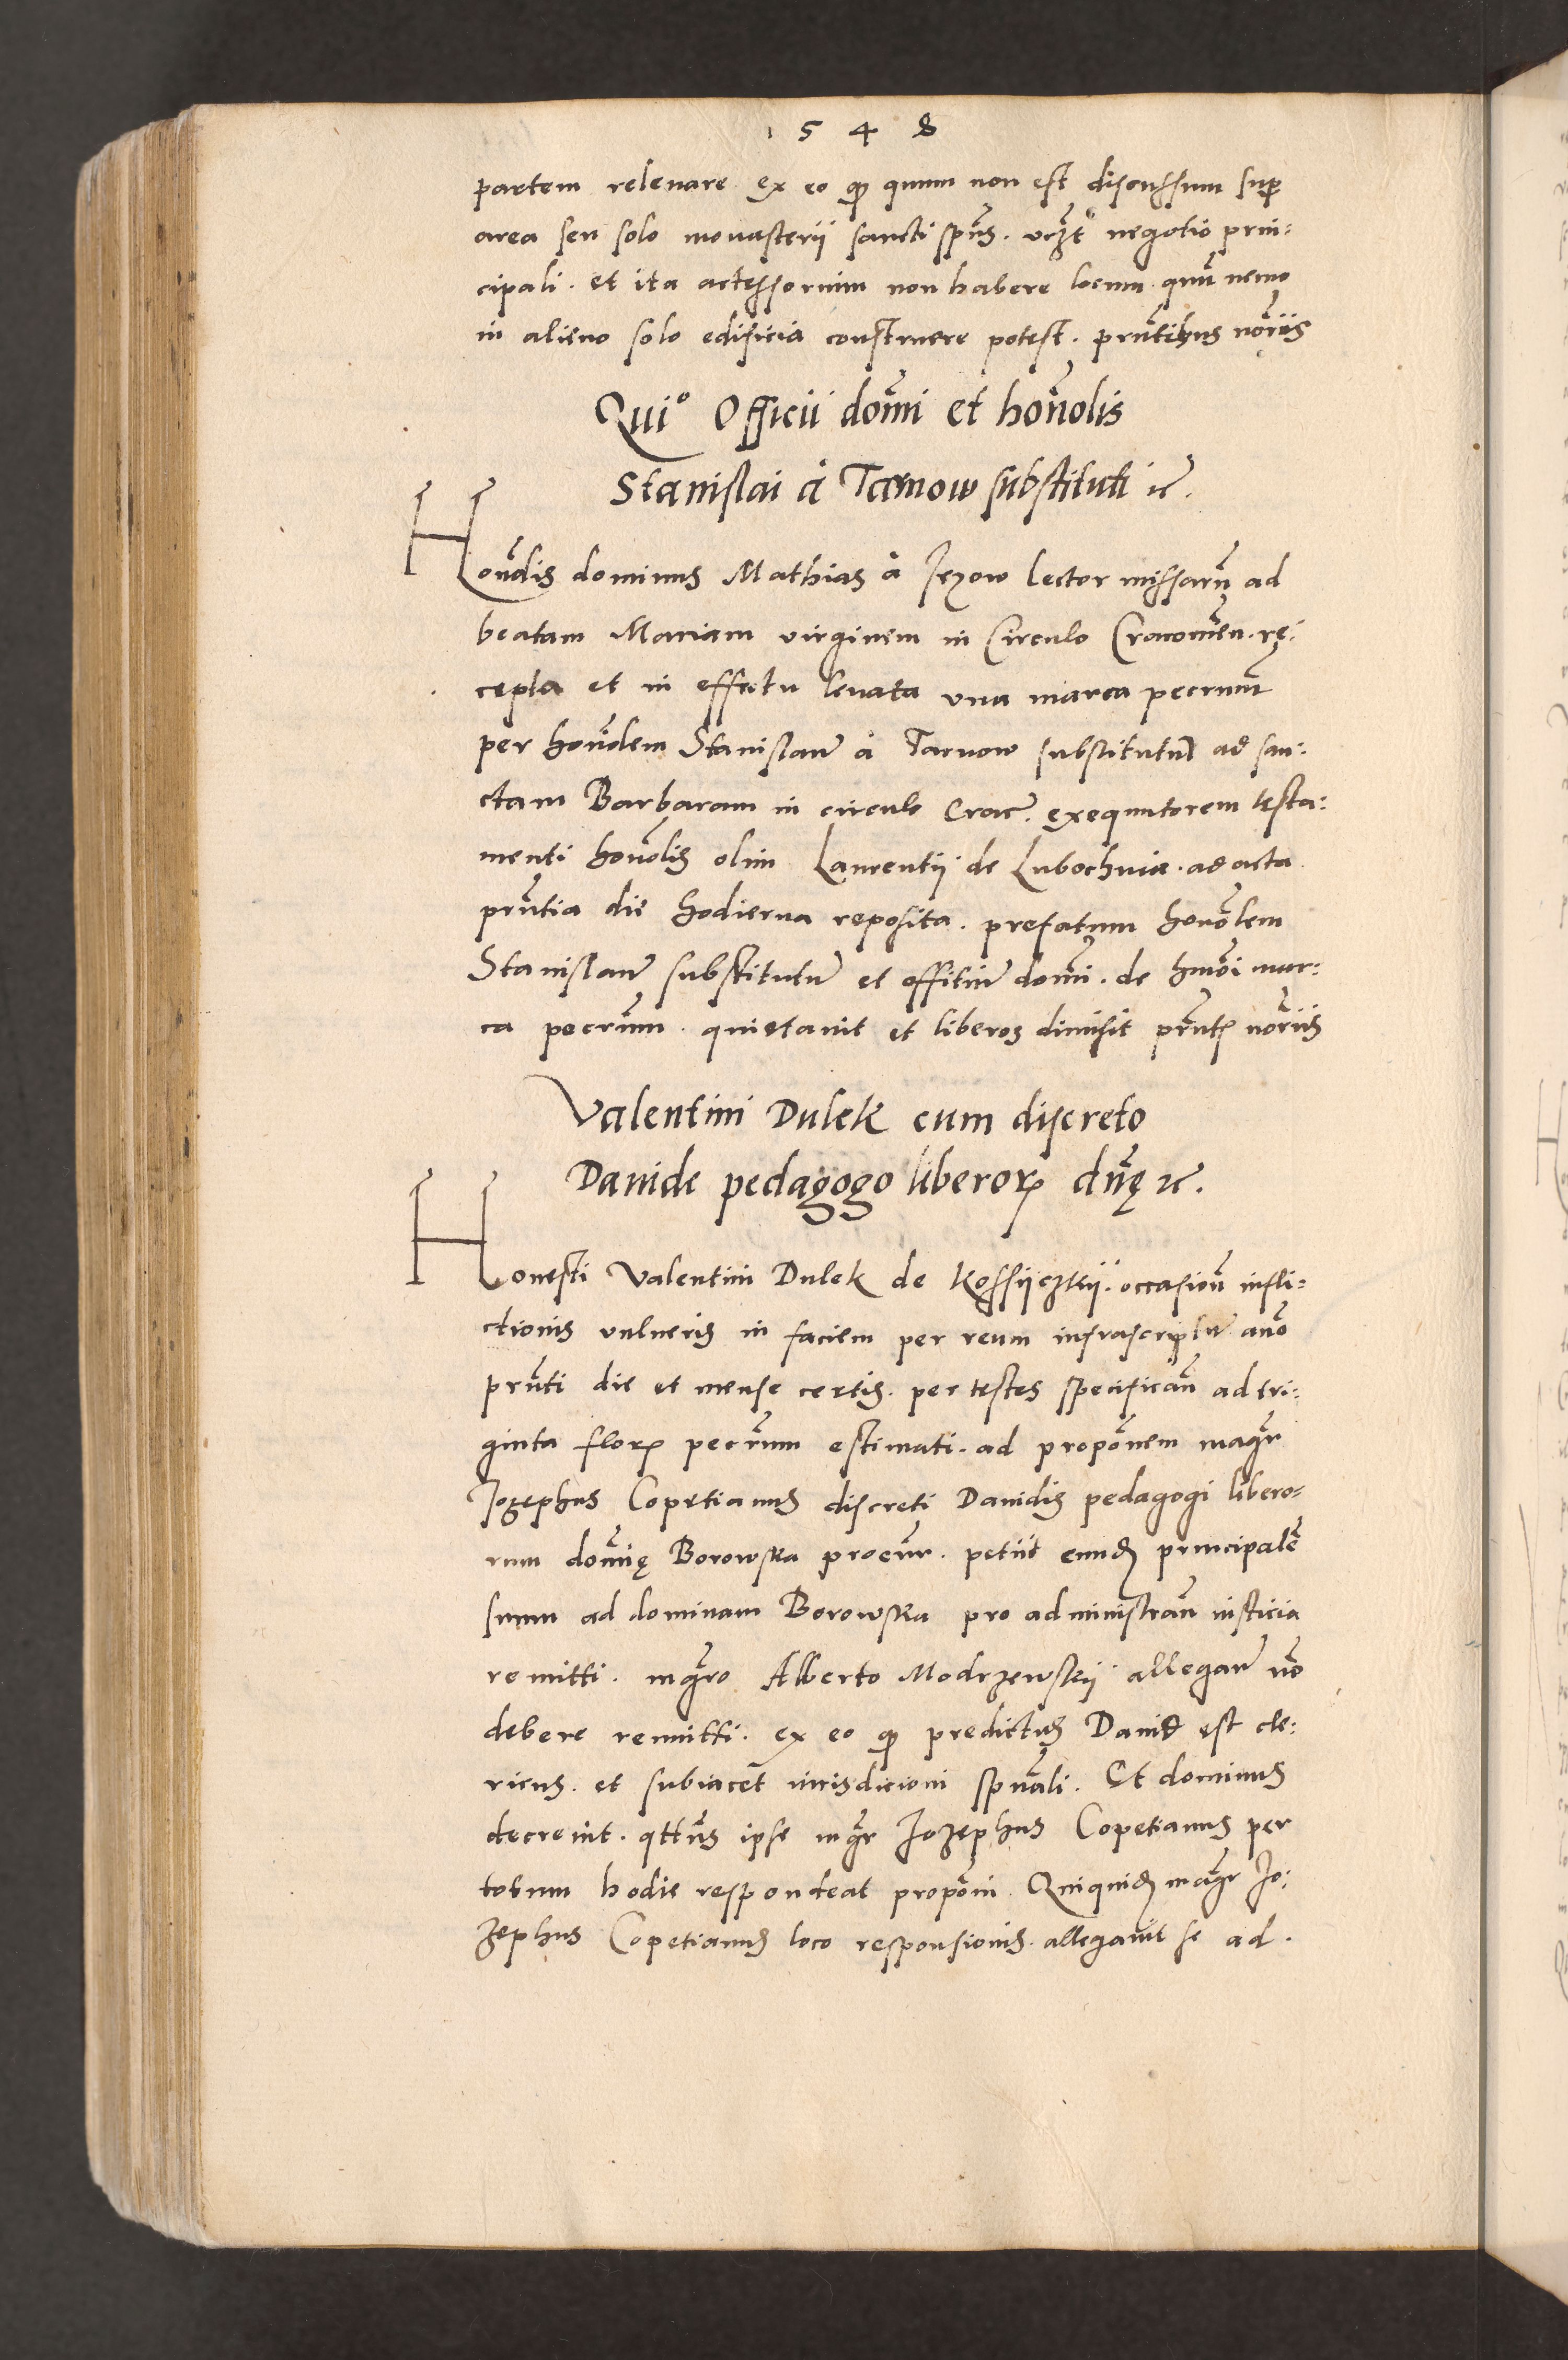 1548
partem releuare ex eo qp quum non est discussum sup
area seu solo monasterii sancti spus. negotio prin:
cipali. et ita actessorium non habere locum. quu nemo
in alieno solo edificia construere potest. pruntibus noriis
Qui° Officii domi et honolis
Stanislai à Tarnow substituti zc.
Honodis dominus Mathias à Jezow lector missaru ad
beatam Mariam virginem in Circulo Cracouien. re:
cepta et in effectu leuata vna marca pecunm
per honolem Stanislau à Tarnow substitutu ad san:
ctam Barbaram in circulo Crac. exequutorem testa:
menti honolis olim Laurentii de Lubochnia. ad acta
pruntia die hodierna reposita. prefatum honolem
Stanislau substitutu et offitiu domi. de hmoi mar:
ca pecrum. quietauit et liberos dimisit prunt noriis
Valentini Dulek cum discreto
Dauide pedagogo liberor dnę zc.
Honesti Valentini Dulek de Kossyczkii. occasion infli:
ctionis vulneris in faciem per reum infrascriptu ano
prunti die et mense certis. per testes specifican ad tri:
ginta flor pecrum estimati. ad proponem magr
Jozephus Copetianus discreti Dauidis pedagogi libero:
rum domię Borowska procur. petiit eund principale
suum ad dominam Borowska pro administran iusticia
remitti. mgro Alberto Modrzewskij allegan no
debere remitti. ex eo qp predictus Dauid est cle:
ricus. et subiacet iurisdicioni spuali. Et dominus
decreuit. qttus ipse mgr Jozephus Copetianus per
totum hodie respondeat proponi. Quiquid magr Jo:
zephus Copetianus loco responsionis. allegauit se ad.